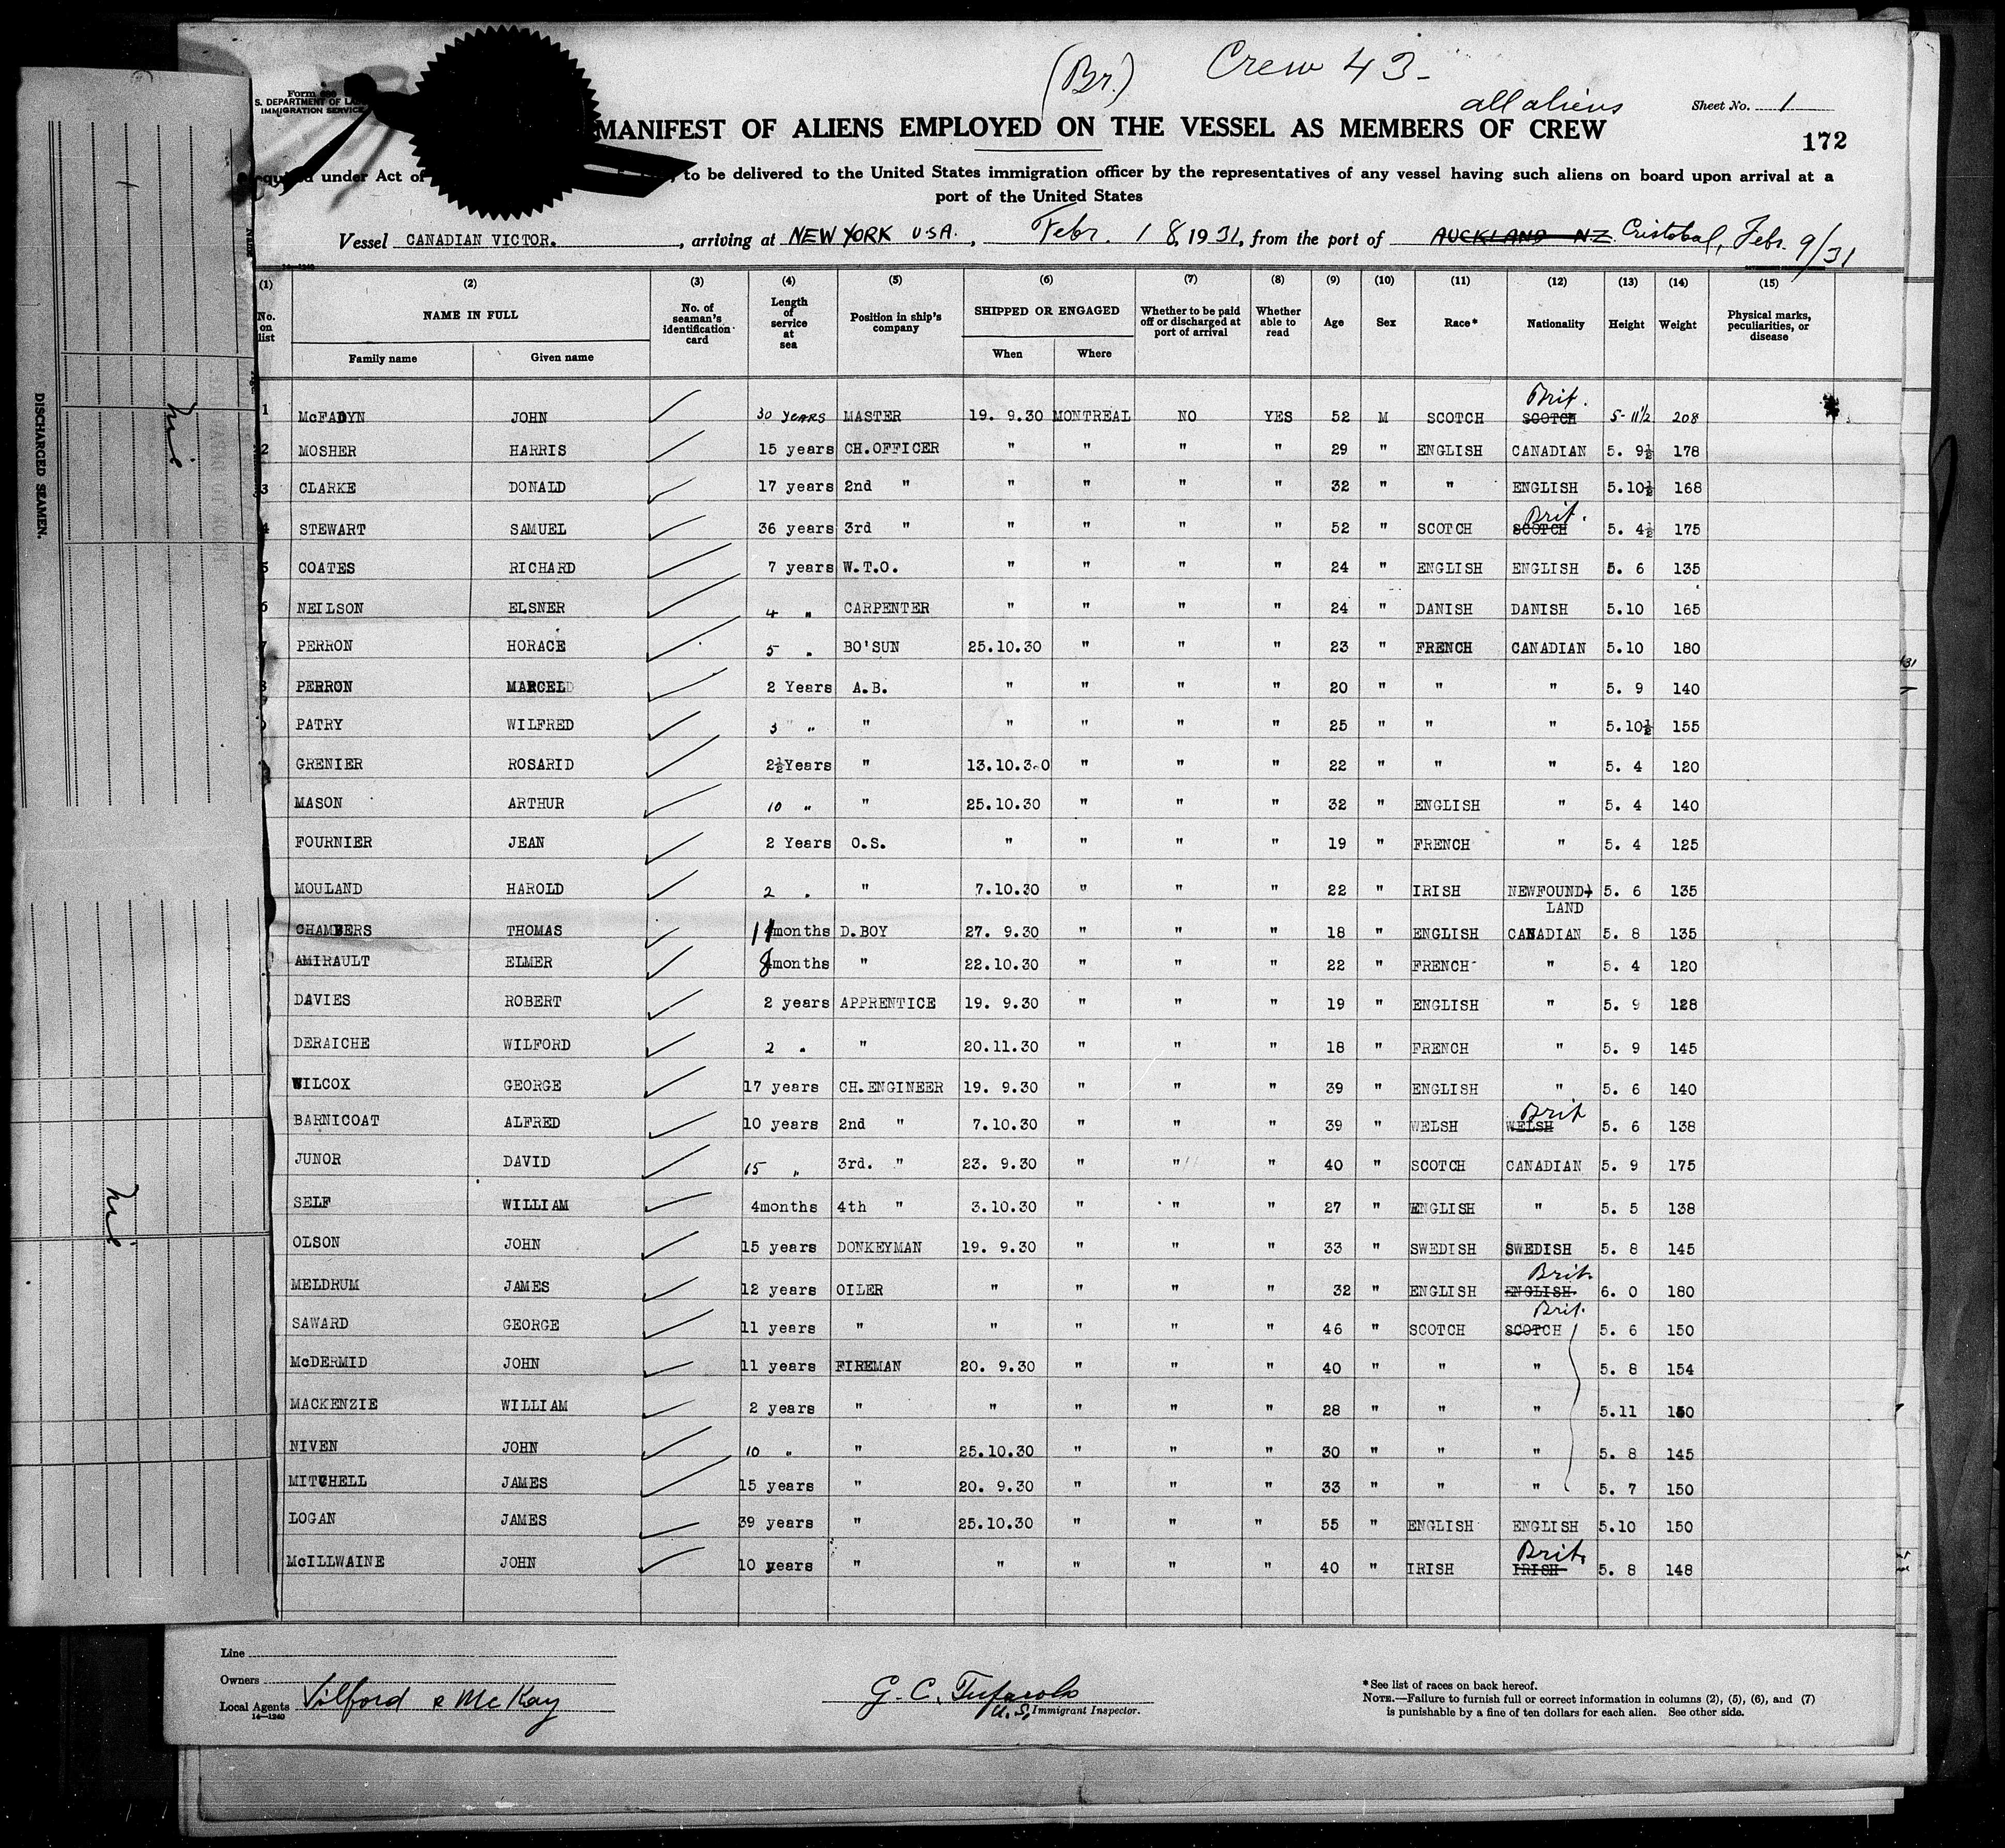 (Br.) Crew 43-
all aliens
Form 680
S. DEPARTMENT OF LA
IMMIGRATION SERVICE
Sheet No. 1
MANIFEST OF ALIENS EMPLOYED ON THE VESSEL AS MEMBERS OF CREW
172
under Act of , to be delivered to the United States immigration officer by the representatives of any vessel having such aliens on board upon arrival at a
port of the United States
Vessel CANADIAN VICTOR. , arriving at NEW YORK U.S.A. , Febr. 18, 1931, from the port of AUCKLAND N.Z. Cristobal, Febr. 9/31
14-1240
(1) (2) (3) (4) (5) (6) (7) (8) (9) (10) (11) (12) (13) (14) (15)
No. on list NAME IN FULL No. of seaman's identification card Length of service at sea Position in ship's company SHIPPED OR ENGAGED Whether to be paid off or discharged at port of arrival Whether able to read Age Sex Race* Nationality Height Weight Physical marks, peculiarities, or disease
Family name Given name When Where
1 McFADYN JOHN 30 YEARS MASTER 19. 9.30 MONTREAL NO YES 52 M SCOTCH SCOTCH Brit. 5-11½ 208
2 MOSHER HARRIS 15 years CH.OFFICER " " " " 29 " ENGLISH CANADIAN 5. 9½ 178
3 CLARKE DONALD 17 years 2nd " " " " " 32 " " ENGLISH 5.10½ 168
4 STEWART SAMUEL 36 years 3rd " " " " " 52 " SCOTCH SCOTCH Brit. 5. 4½ 175
5 COATES RICHARD 7 years W.T.O. " " " " 24 " ENGLISH ENGLISH 5. 6 135
6 NEILSON ELSNER 4 " CARPENTER " " " " 24 " DANISH DANISH 5.10 165
7 PERRON HORACE 5 " BO'SUN 25.10.30 " " " 23 " FRENCH CANADIAN 5.10 180
8 PERRON MARCEL 2 Years A.B. " " " " 20 " " " 5. 9 140
PATRY WILFRED 3 " " " " " " 25 " " " 5.10½ 155
GRENIER ROSARID 2½Years " 13.10.3.0 " " " 22 " " " 5. 4 120
MASON ARTHUR 10 " " 25.10.30 " " " 32 " ENGLISH " 5. 4 140
FOURNIER JEAN 2 Years O.S. " " " " 19 " FRENCH " 5. 4 125
MOULAND HAROLD 2 " " 7.10.30 " " " 22 " IRISH NEWFOUND- 5. 6 135
LAND
CHAMBERS THOMAS 11months D.BOY 27. 9.30 " " " 18 " ENGLISH CANADIAN 5. 8 135
AMIRAULT ELMER 8months " 22.10.30 " " " 22 " FRENCH " 5. 4 120
DAVIES ROBERT 2 years APPRENTICE 19. 9.30 " " " 19 " ENGLISH " 5. 9 128
DERAICHE WILFORD 2 " " 20.11.30 " " " 18 " FRENCH " 5. 9 145
WILCOX GEORGE 17 years CH.ENGINEER 19. 9.30 " " " 39 " ENGLISH " 5. 6 140
BARNICOAT ALFRED 10 years 2nd " 7.10.30 " " " 39 " WELSH WELSH Brit 5. 6 138
JUNOR DAVID 15 " 3rd. " 23. 9.30 " " " 40 " SCOTCH CANADIAN 5. 9 175
SELF WILLIAM 4months 4th " 3.10.30 " " " 27 " ENGLISH " 5. 5 138
OLSON JOHN 15 years DONKEYMAN 19. 9.30 " " " 33 " SWEDISH SWEDISH 5. 8 145
MELDRUM JAMES 12 years OILER " " " " 32 " ENGLISH ENGLISH Brit. 6. 0 180
SAWARD GEORGE 11 years " " " " " 46 " SCOTCH SCOTCH Brit. 5. 6 150
McDERMID JOHN 11 years FIREMAN 20. 9.30 " " " 40 " " " 5. 8 154
MACKENZIE WILLIAM 2 years " " " " " 28 " " " 5.11 150
NIVEN JOHN 10 " " 25.10.30 " " " 30 " " " 5. 8 145
MITCHELL JAMES 15 years " 20. 9.30 " " " 33 " " " 5. 7 150
LOGAN JAMES 39 years " 25.10.30 " " " 55 " ENGLISH ENGLISH 5.10 150
McILLWAINE JOHN 10 years " " " " " 40 " IRISH IRISH Brit. 5. 8 148
Line
Owners
Local Agents Vilford & McKay
14-1240
G. C.
U.S. Immigrant Inspector.
*See list of races on back hereof.
NOTE.—Failure to furnish full or correct information in columns (2), (5), (6), and (7)
is punishable by a fine of ten dollars for each alien. See other side.
DISCHARGED SEAMEN.